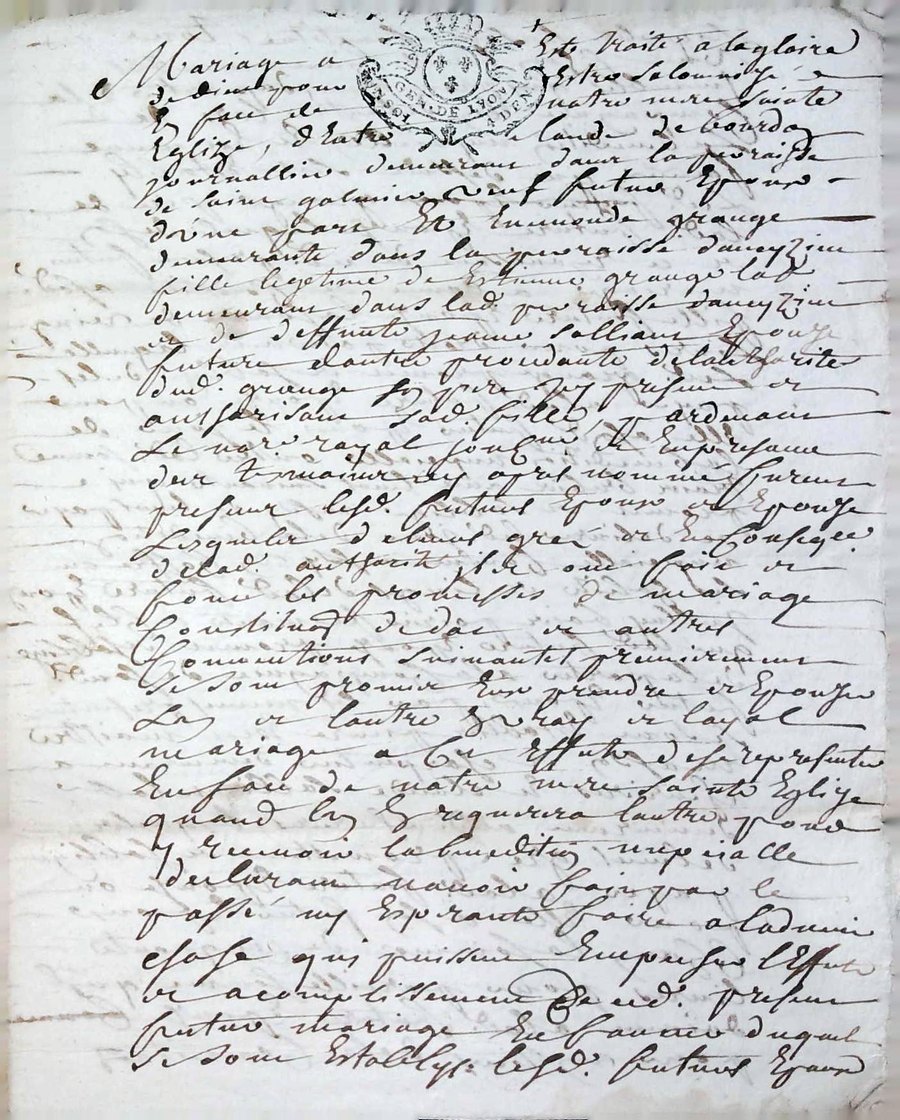 Mariage a Este traité a la gloire
de dieu pour Estre Salomnisé
En face de notre mere sainte
Eglize, d'Entre Claude de bourdo
journallier demeurant dans la parroisse
de saint galmier veuf futur Epoux
d'une part Et Enemonde grange
demeurante dans la parroisse daveyzieu
fille legetime de Estienne grange lab
demeurant dans lad. parroisse daveyzieu
et de deffunte jeanne Epouze
future dautre procedante de lauthorité
dud. grange son pere icy present et
authorisant sad. fille, pardevant
Le nore. royal soubne. et En presance
des temoins cy apres nommé furent
present lesd. futurs Epoux et Epouze
Lesquels de leurs gré et En Conseqce.
de lad. authorité, ont fait et
les promesses de mariage
Constitu͠on de dot et autres
Conventions suivantes premierement
se sont promis Eux prendre et Epouzer
Lun et lautre En vray et layal
mariage a Cet Effect de se representer
En face de notre mere sainte Eglize
quand lun En requerera lautre pour
y recevoir la benediction nupcialle
declarant navoir fait par le
passé ny Esperante faire a ladvenir
chose qui puissent Empecher l'Effect
et acomplissement de ced. present
futur mariage En faveur duquel
se sont Estably lesd. futurs Epoux
GEN. DE LYON